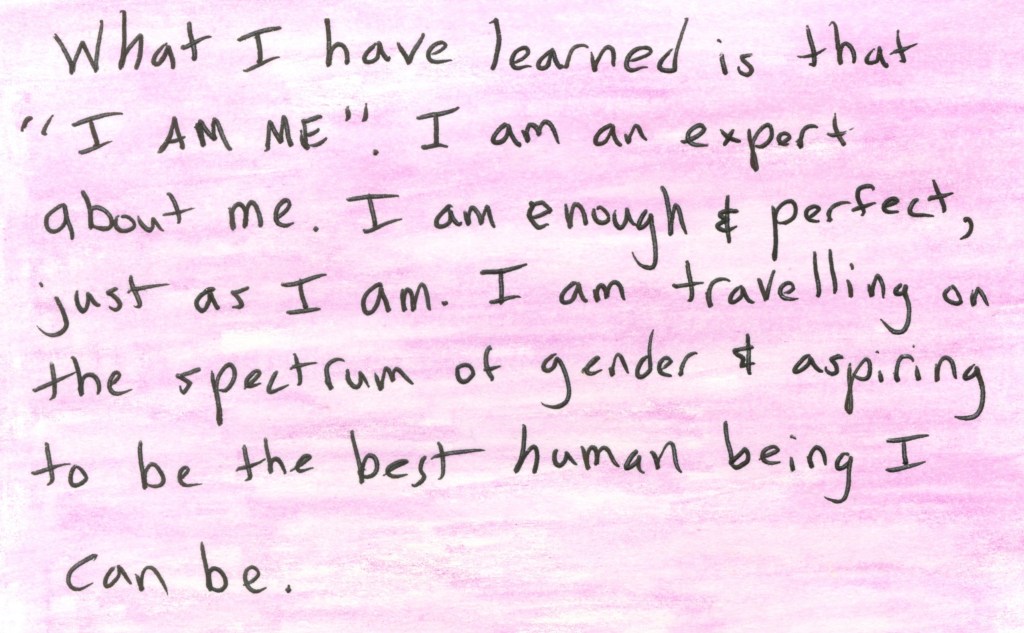 What I have learned is that
"I AM ME". I am an expert
about me. I am enough & perfect,
just as I am. I am travelling on
the spectrum of gender & aspiring
to be the best human being I
can be.